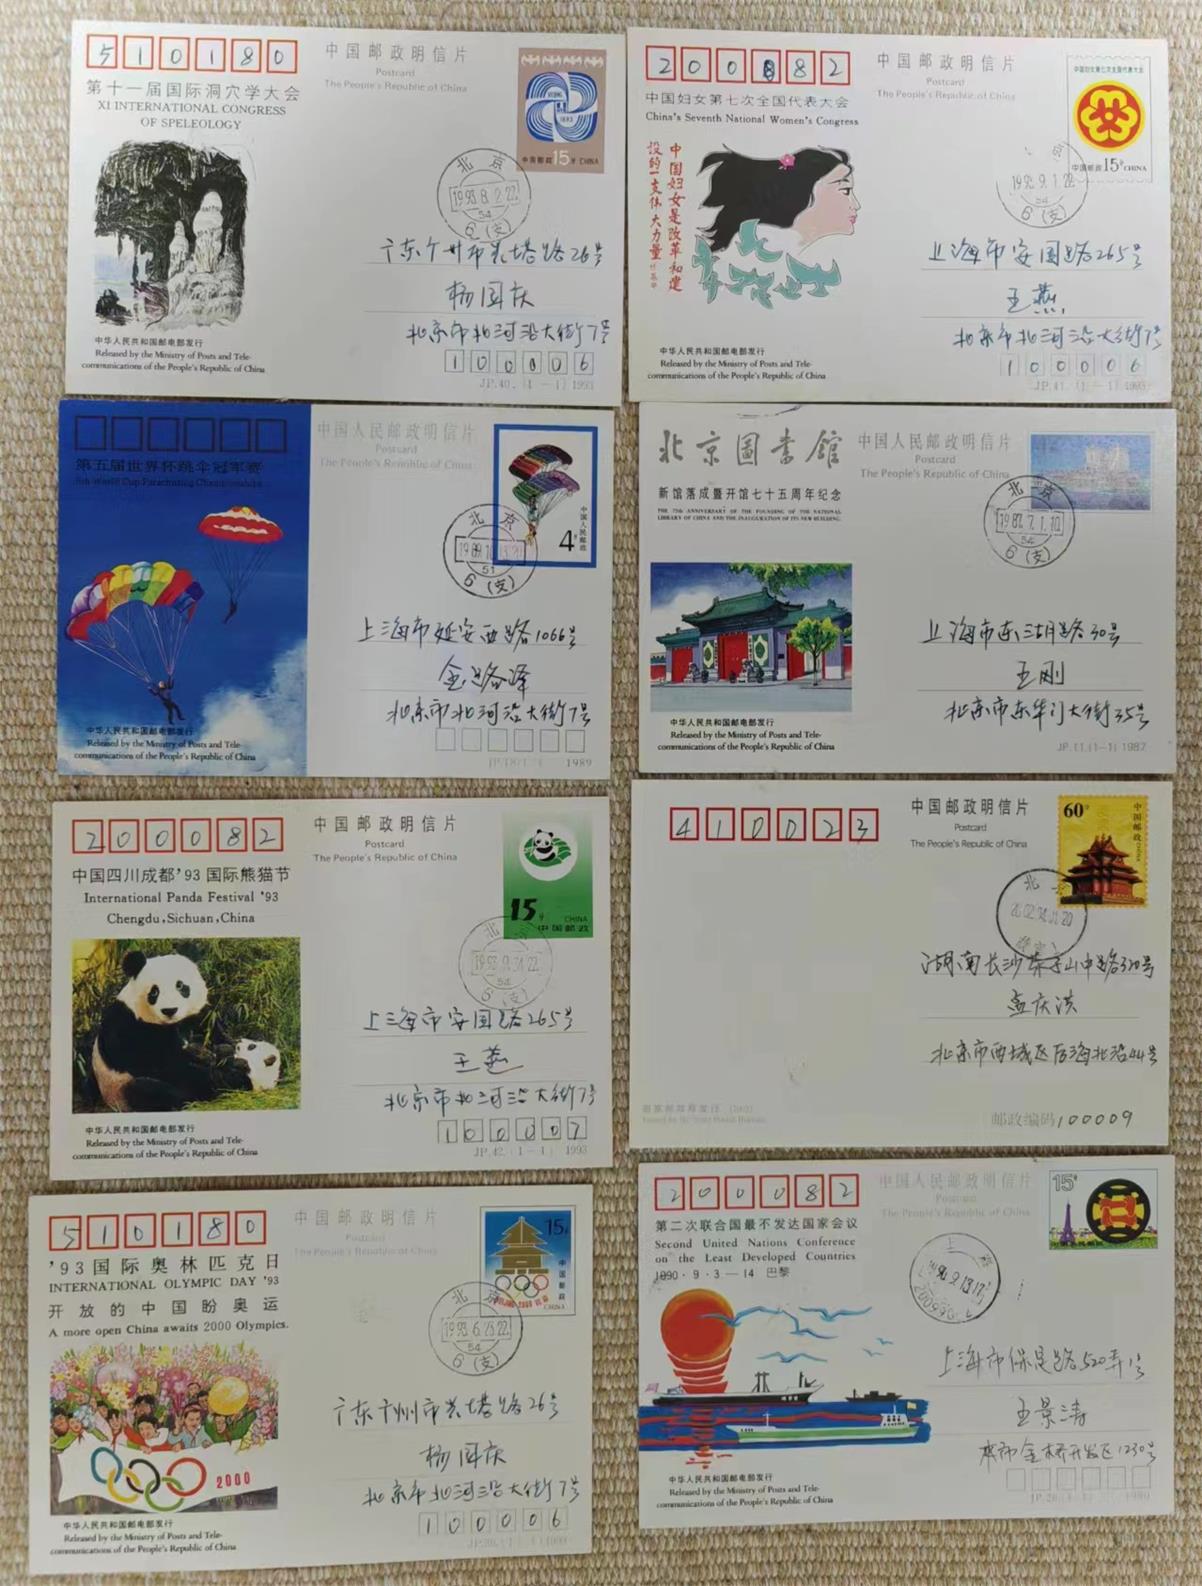 510180
中国邮政明信片
Postcard
The People's Republic of China
第十一届国际洞穴学大会
XI INTERNATIONAL CONGRESS
OF SPELEOLOGY
中国邮政 15分 CHINA
北京
1993.8.2.22
54
6(支)
广东广州市
路26号
杨国庆
北京市北河沿大街7号
100006
中华人民共和国邮电部发行
Released by the Ministry of Posts and Tele-
communications of the People's Republic of China
JP.40.(1-1)1993
200082
中国邮政明信片
Postcard
The People's Republic of China
中国妇女第七次全国代表大会
China's Seventh National Women's Congress
中国妇女第七次全国代表大会
中国邮政 15分 CHINA
中国妇女是改革和建
设的一支伟大力量
1993.9.1.22
54
6(支)
上海市安国路265号
王燕
北京市北河沿大街7号
100006
中华人民共和国邮电部发行
Released by the Ministry of Posts and Tele-
communications of the People's Republic of China
JP.41.(1-1)1993
中国人民邮政明信片
Postcard
The People's Republic of China
第五届世界杯跳伞冠军赛
5th World Cup Parachuting Championships
4分
中国人民邮政
北京
51
6(支)
上海市延安西路1066号
北京市北河沿大街7号
中华人民共和国邮电部发行
Released by the Ministry of Posts and Tele-
communications of the People's Republic of China
1989
北京圖書館
中国人民邮政明信片
Postcard
The People's Republic of China
新馆落成暨开馆七十五周年纪念
THE 75th ANNIVERSARY OF THE FOUNDING OF THE NATIONAL
LIBRARY OF CHINA AND THE INAUGURATION OF ITS NEW BUILDING.
北京
1987.7.1.10
54
6(支)
上海市东湖路30号
王刚
北京市东华门大街35号
中华人民共和国邮电部发行
Released by the Ministry of Posts and Tele-
communications of the People's Republic of China
JP.11.(1-1)1987
200082
中国邮政明信片
Postcard
The People's Republic of China
中国四川成都'93国际熊猫节
International Panda Festival '93
Chengdu,Sichuan,China
15分 CHINA
中国邮政
54
6(支)
上海市安国路265号
王燕
北京市北河沿大街7号
100007
中华人民共和国邮电部发行
Released by the Ministry of Posts and Tele-
communications of the People's Republic of China
JP.42.(1-1)1993
410023
中国邮政明信片
Postcard
The People's Republic of China
60分
中国邮政
CHINA
北京
湖南长沙
山中路320号
孟庆洪
北京市西城区后海北沿44号
邮政编码100009
510180
中国邮政明信片
Postcard
The People's Republic of China
'93国际奥林匹克日
INTERNATIONAL OLYMPIC DAY '93
开放的中国盼奥运
A more open China awaits 2000 Olympics.
15分
中国邮政
北京
1993.6.23.22
54
6(支)
2000
广东广州市
路26号
杨国庆
北京市北河沿大街7号
100006
中华人民共和国邮电部发行
Released by the Ministry of Posts and Tele-
communications of the People's Republic of China
200082
中国人民邮政明信片
Postcard
The People's Republic of China
第二次联合国最不发达国家会议
Second United Nations Conference
on the Least Developed Countries
1990·9·3—14 巴黎
15分
中国人民邮政
上海
上海市保定路520弄1号
王景涛
本市金桥开发区1230号
中华人民共和国邮电部发行
Released by the Ministry of Posts and Tele-
communications of the People's Republic of China
1990